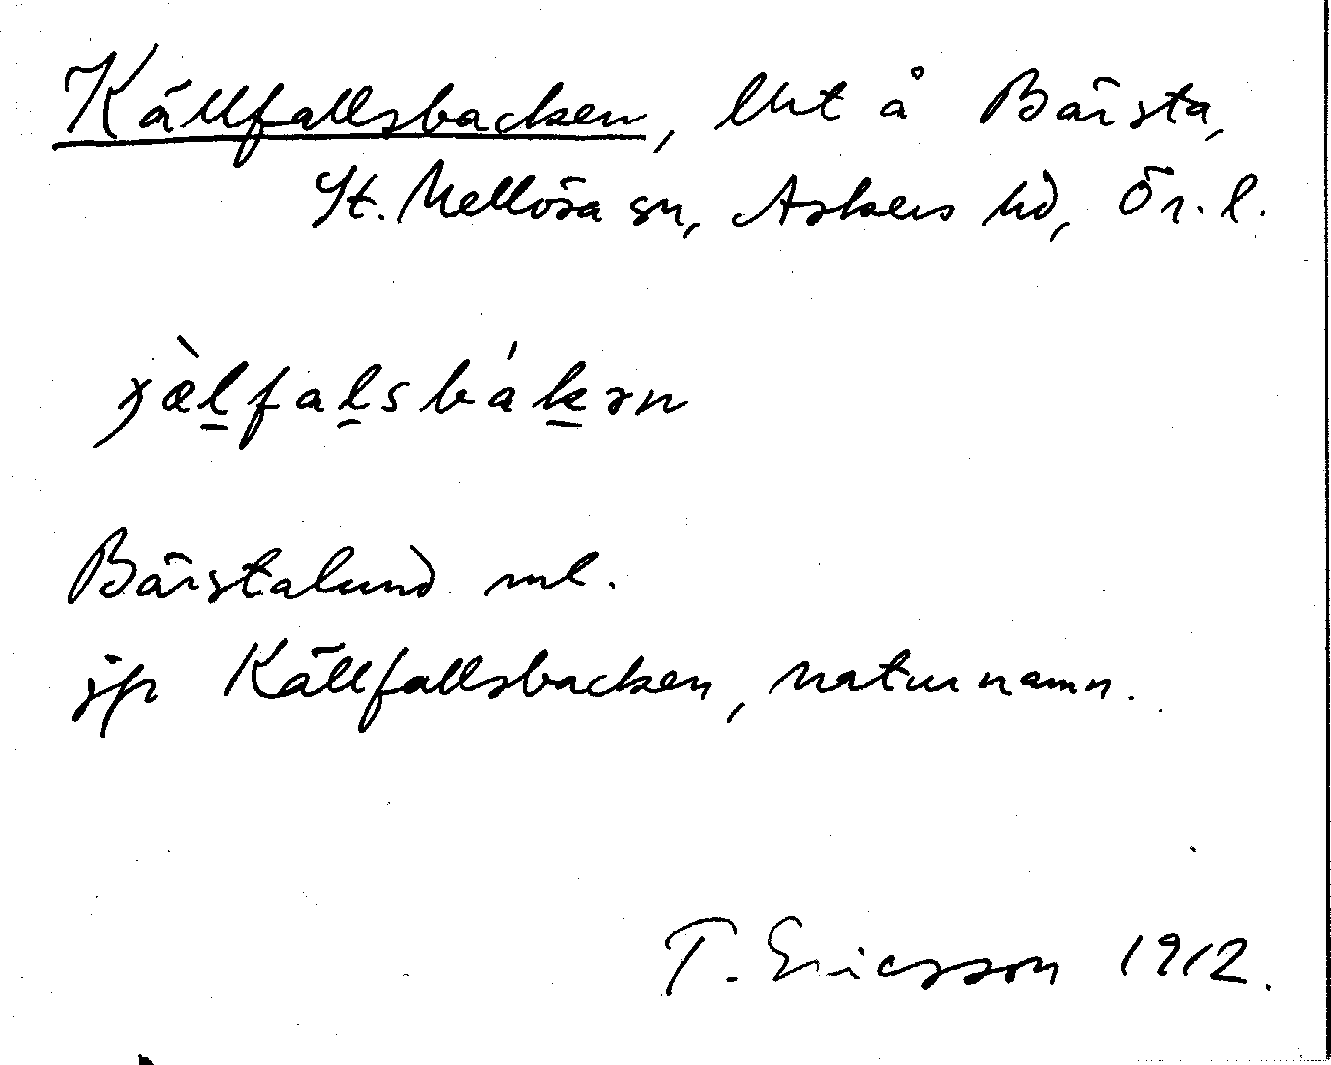 Källfallsbacken, lht å Bärsta,
St. Mellösa sn, Askers hd, Ör. l.
ɟæ̀l̲fal̲sbák̲ən
Bärstalund ml.
jfr Källfallsbacken, naturnamn.
T. Ericsson 1912.